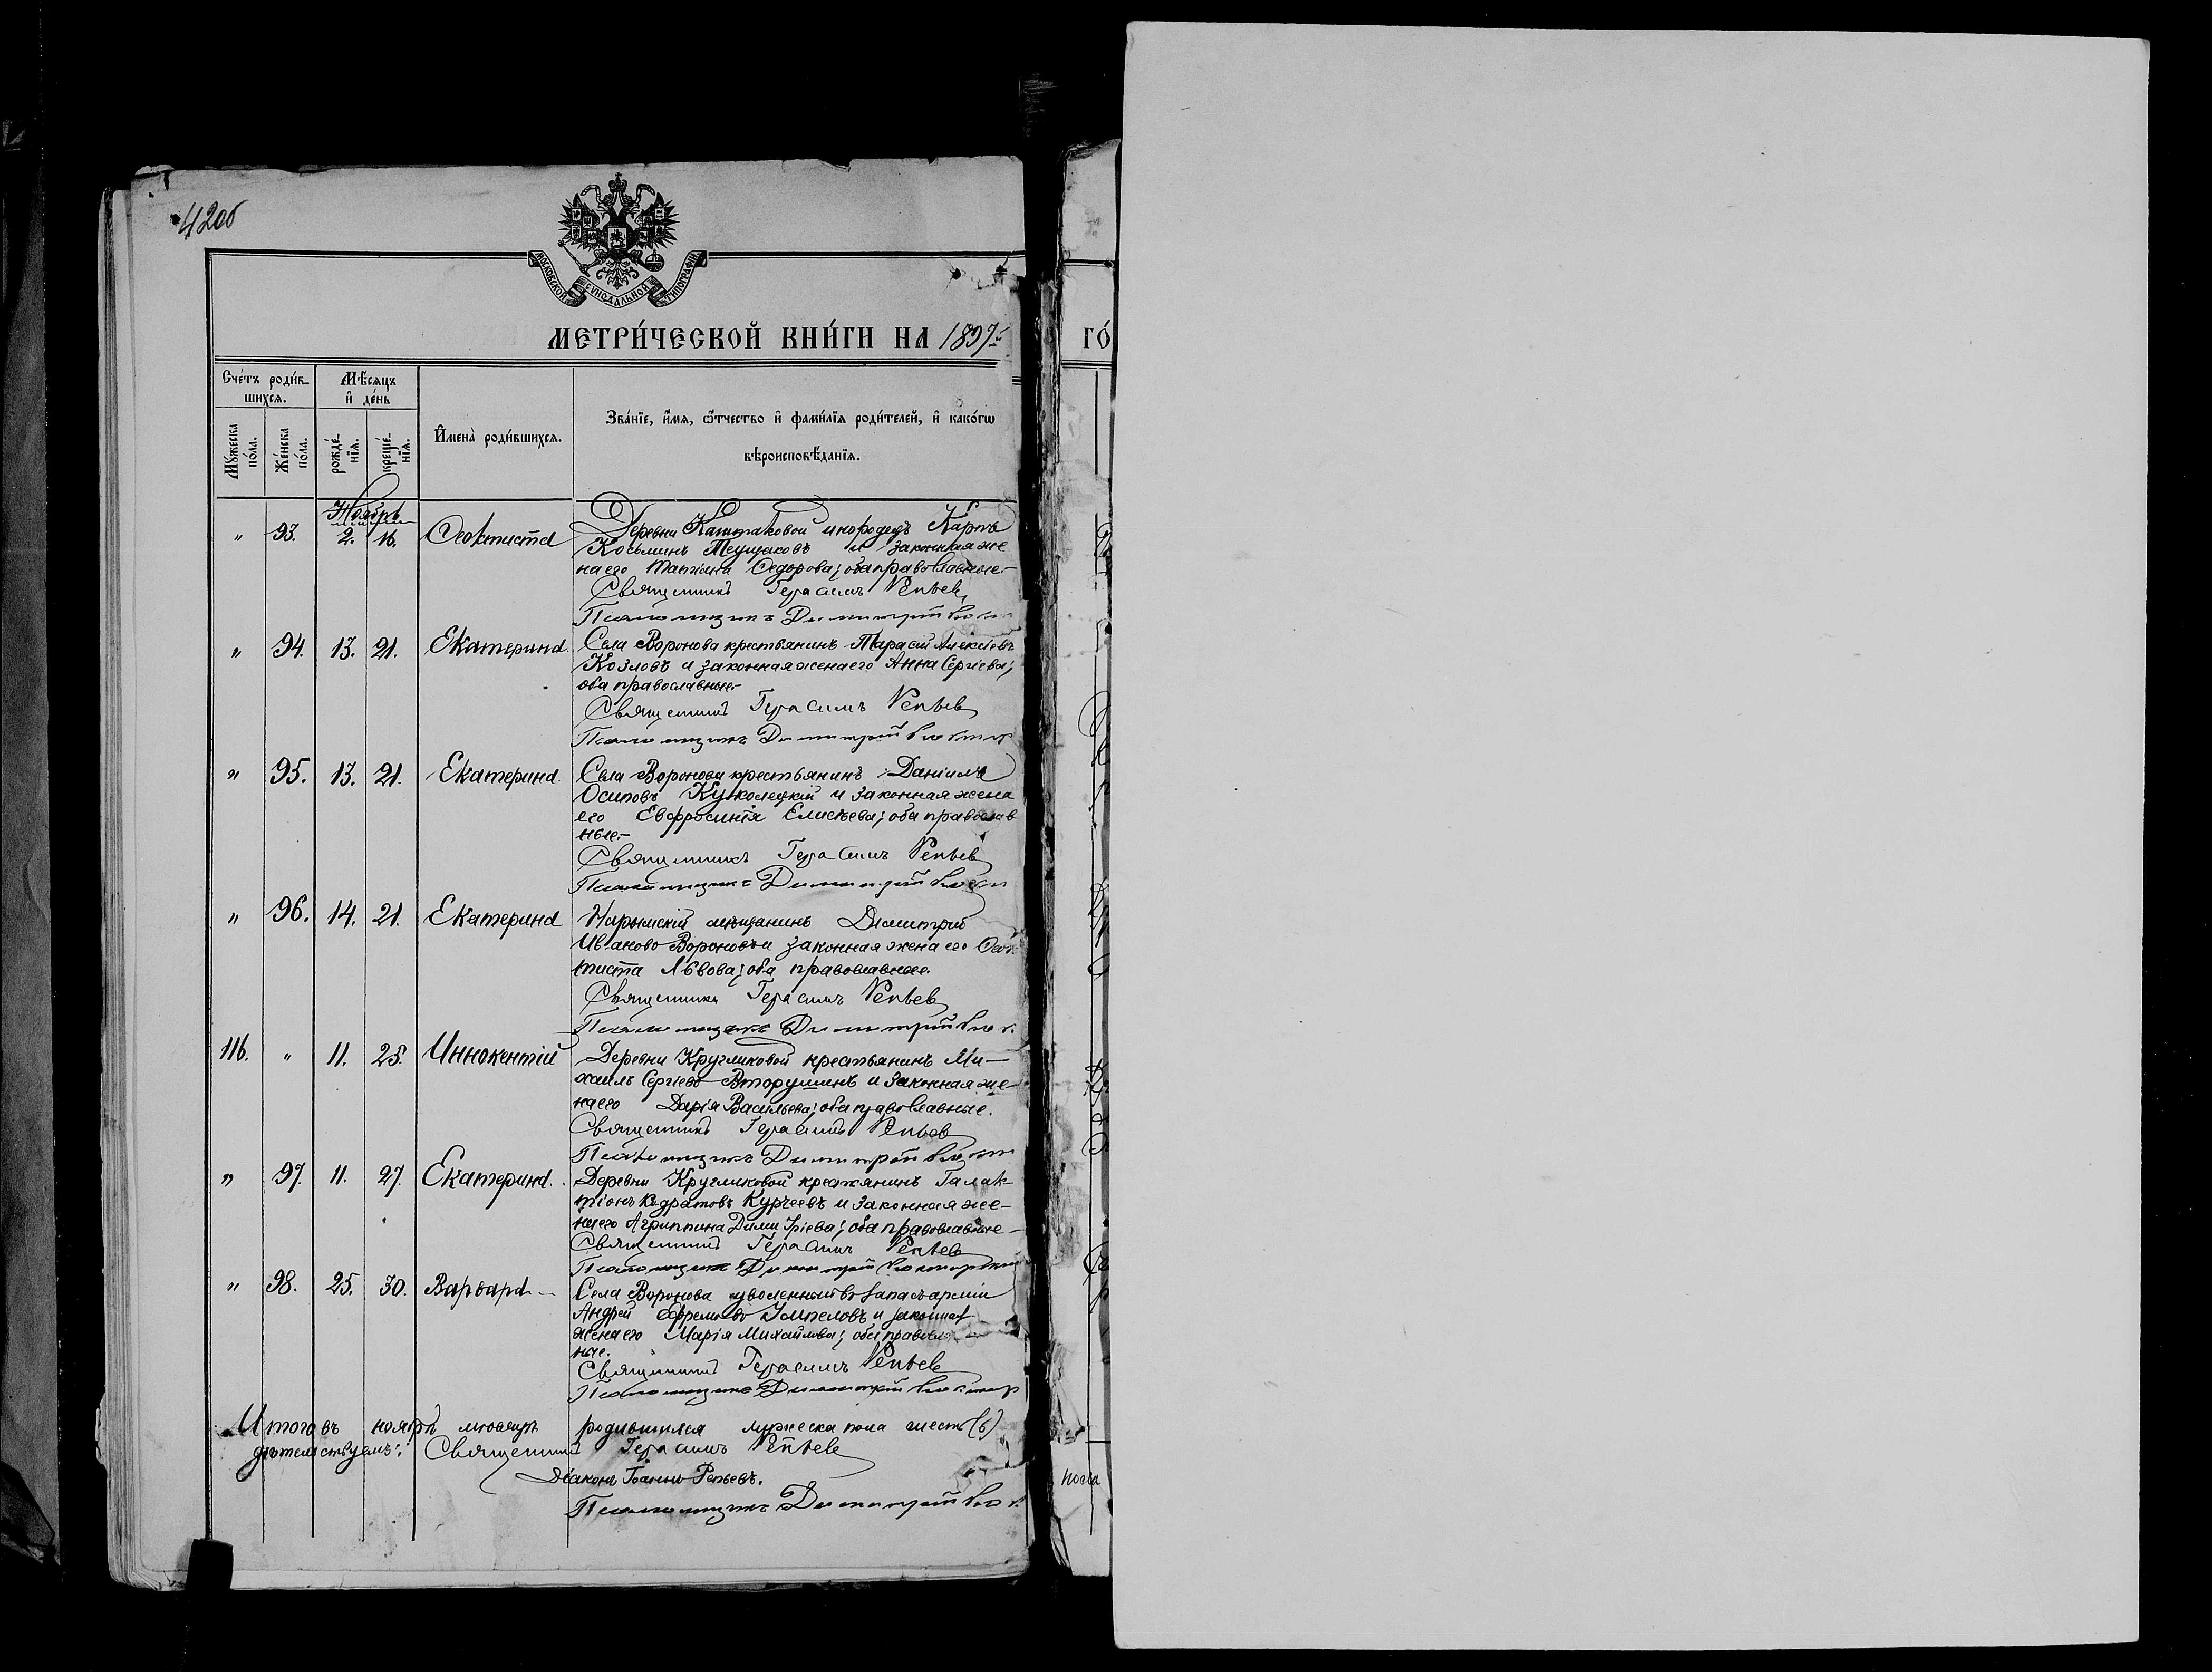 42об
МОСКОВСКОЙ СѴНОДАЛЬНОЙ ТИПОГРАФІИ
МЕТРИ́ЧЕСКОЙ КНИ́ГИ НА 1897й
ГО́
Сче́тъ роди́в-
шихсѧ.
Мѣ́сѧцъ
и҆ де́нь
Мꙋ́жеска
по́ла.
Же́нска
по́ла.
рожде́-
нїѧ.
креще́-
нїѧ.
И҆мена̀ роди́вшихсѧ.
Зва́нїе, и҆́мѧ, ѻ҆́тчество и҆ фами́лїѧ роди́телей, и҆ како́гѡ
вѣроисповѣ́данїѧ.
Ноябрь
" 93. 2. 16. Ѳеоктиста Деревни Каштаковой инородецъ Карпъ
Косьминъ и законная же
на его Татіана Ѳедорова; оба православные.-
Священникъ Герасимъ Репьев
Псаломщикъ Димитрій
" 94. 13. 21. Екатерина. Села Воронова крестьянинъ Тарасій Алексіевъ
Козловъ и законная жена его Анна Сергіева;
оба православные.-
Священникъ Герасимъ Репьев
Псаломщикъ Димитрій
" 95. 13. 21. Екатерина. Села Воронова крестьянинъ Даніилъ
Осиповъ и законная жена
его Евфросинія Елисѣева; оба православ
ные.-
Священникъ Герасимъ Репьев
Псаломщикъ Димитрій
" 96. 14. 21. Екатерина Нарымскій мѣщанинъ Димитрій
Ивановъ Вороновъ и законная жена его Ѳеок
тиста Львова; оба православные.
Священникъ Герасимъ Репьев
Псаломщикъ Димитрій
116. " 11. 25. Иннокентій Деревни Кругликовой крестьянинъ Ми-
хаилъ Сергіевъ Вторушинъ и законная же-
на его Дарія Васильева; оба православные.
Священникъ Герасимъ Репьев
Псаломщикъ Димитрій
" 97. 11. 27. Екатерина. Деревни Кругликовой крестьянинъ Галак-
тіонъ Кодратовъ Курчеевъ и законная же-
на его Агриппина Димитріева; оба православные-
Священникъ Герасимъ Репьев
Псаломщикъ Димитрій
" 98. 25. 30. Варвара- Села Воронова уволенный въ запасъ арміи
Андрей Ефремовъ и законная
жена его Марія Михайлова; оба правосла
ные.
Священникъ Герасимъ Репьев
Псаломщикъ Димитрій
Итого въ ноябрѣ мѣсяцѣ родившихся мужеска пола шесть (6)
дѣтельствуемъ: Священникъ Герасимъ Репьев
Діаконъ Іоаннъ Репьевъ.
Псаломщикъ Димитрій